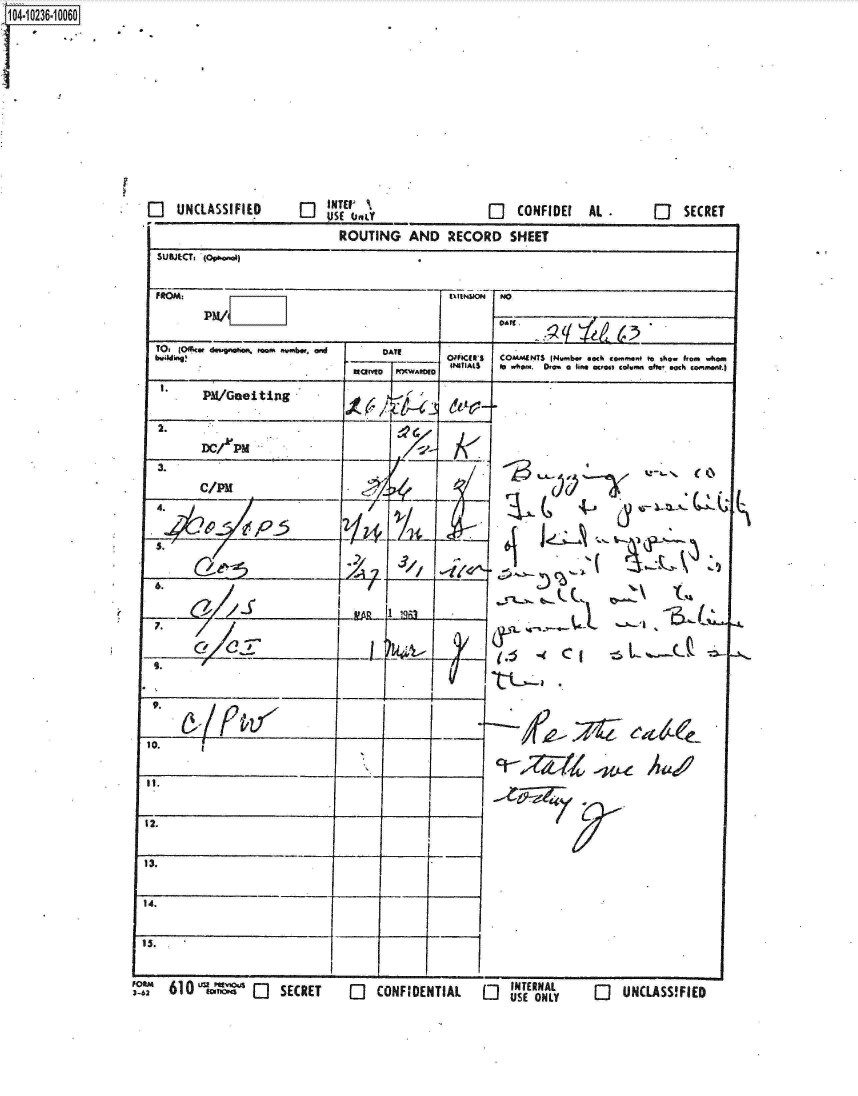 104-10236-10060
UNCLASSIFIED USE ONLY AL SECRET
ROUTING AND RECORD SHEET
SUBJECT: (Optional)
FROM: EXTENSION NO
PM/
DATE
24 Feb 63
TO: (Officer designation, room number, and building) DATE OFFICER'S INITIALS COMMENTS (Number each comment to show from whom to whom. Draw a line across column after each comment.)
RECEIVED FORWARDED
1. PM/Gneiting 26 Feb 63
2. DC/PM 26/2 K
3. C/PM
4. DCOS/OPS
5. COS 2/27 3/1
6. C/IS MAR 1 1963
7. C/CI 1 Mar
9.
9. C/PW
10.
11.
12.
13.
14.
15.
Buzzing
Feb & possibility
of kidnapping
suggest Fidel is
really out to
provoke us. Believe
IS & CI should see
this.
Re the cable
& talk we had
today. J
FORM 3-62 610 USE PREVIOUS EDITIONS SECRET CONFIDENTIAL INTERNAL USE ONLY UNCLASSIFIED